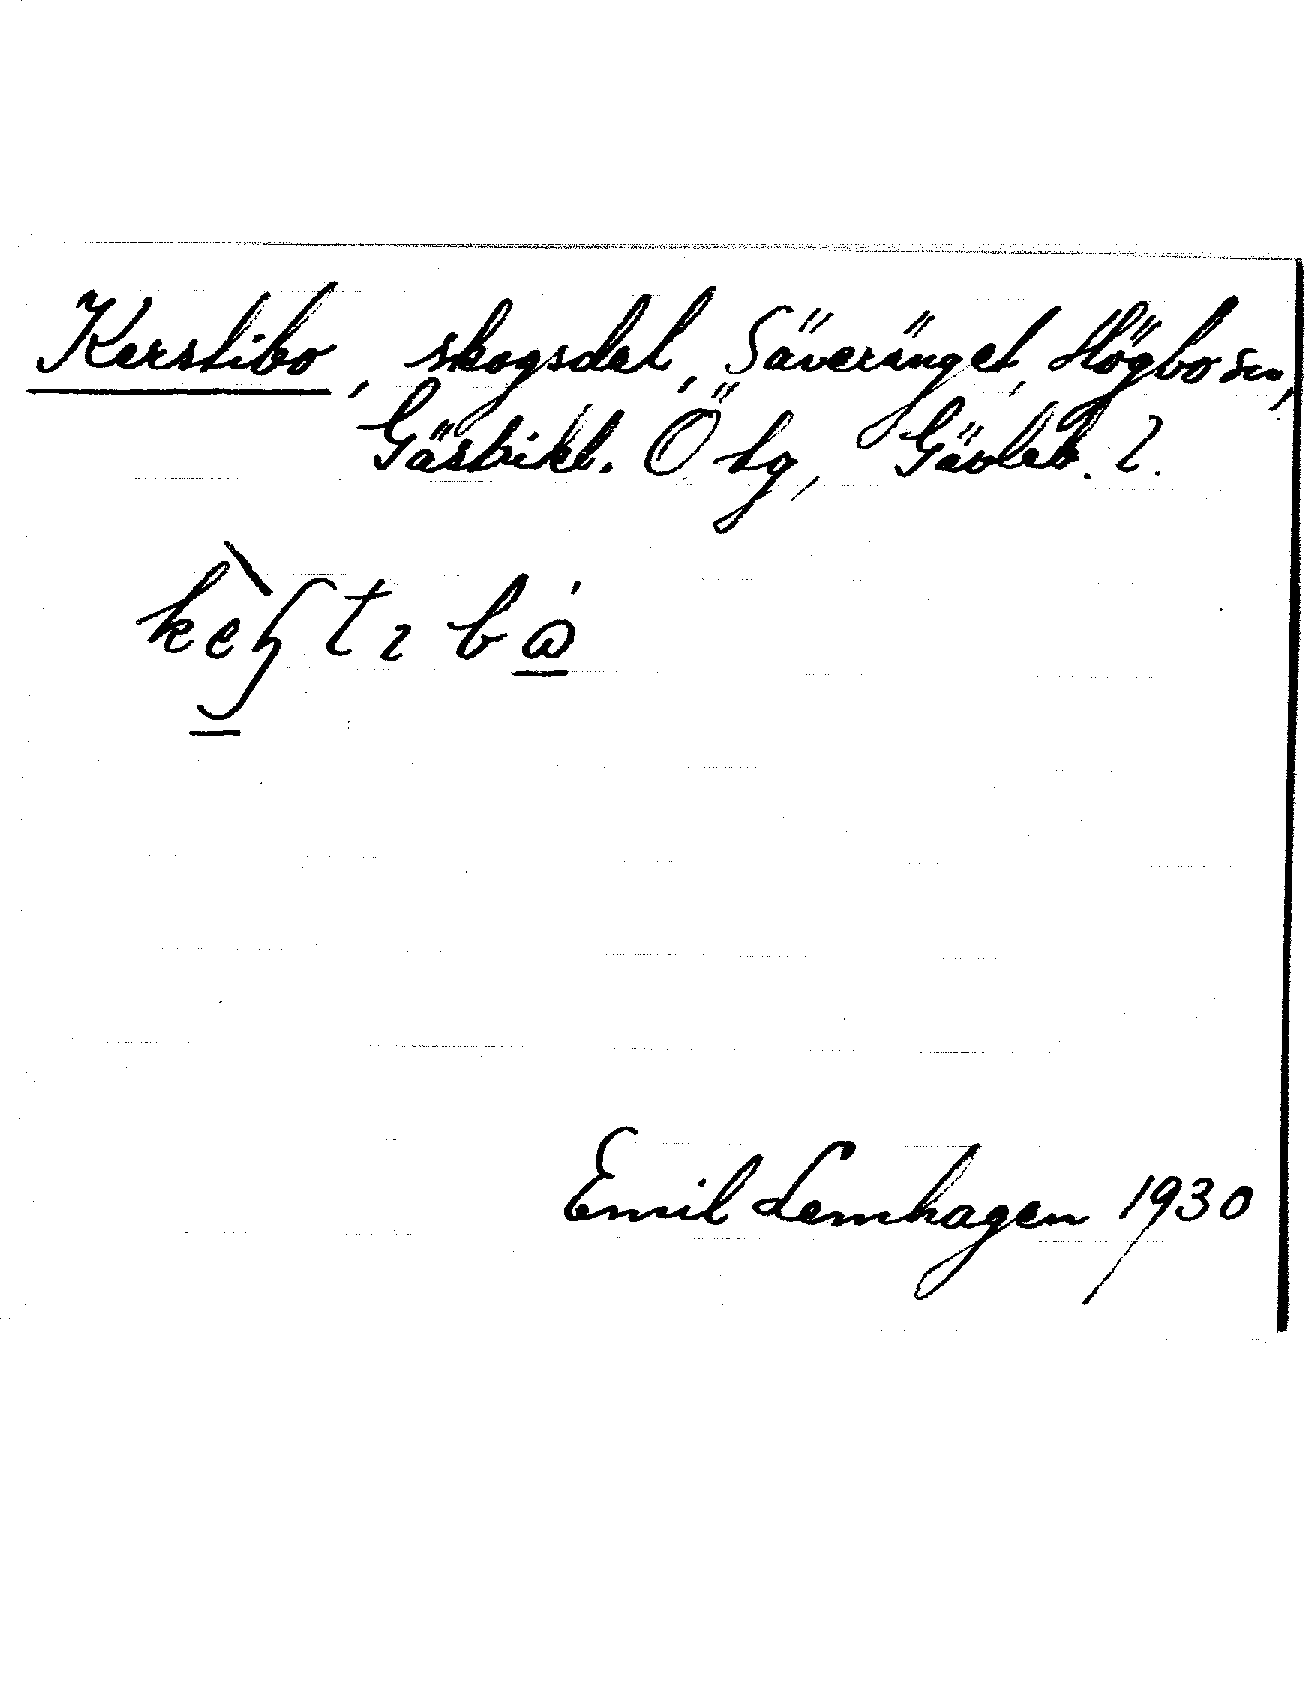 Kerstibo, skogsdel, Säveränget, Högbo sn,
Gästrikl. Ö tg, Gävleb. l.
kèʂtɪbɷ́
Emil Lemhagen 1930